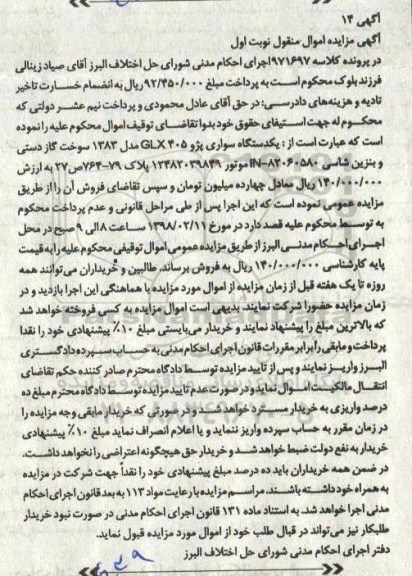 آگهی ۱۴
آگهی مزایده اموال منقول نوبت اول
در پرونده کلاسه ۹۷۱۶۹۷ اجرای احکام مدنی شورای حل اختلاف البرز آقای صیاد زینالی
فرزند بلوک محکوم است به پرداخت مبلغ ۹۲/۴۵۰/۰۰۰ ریال به انضمام خسارت تاخیر
تادیه و هزینه‌های دادرسی: در حق آقای عادل محمودی و پرداخت نیم عشر دولتی که
محکوم له جهت استیفای حقوق خود بدوا تقاضای توقیف اموال محکوم علیه را نموده
است که عبارت است از: یکدستگاه سواری پژو ۴۰۵ GLX مدل ۱۳۸۳ سوخت گاز دستی
و بنزین شاسی IN-۸۳۰۶۰۵۸۰ موتور ۱۲۴۸۲۰۳۹۸۴۹ پلاک ۷۹-۷۶۴ص۲۷ به ارزش
۱۴۰/۰۰۰/۰۰۰ ریال معادل چهارده میلیون تومان و سپس تقاضای فروش آن را از طریق
مزایده عمومی نموده است که این اجرا پس از طی مراحل قانونی و عدم پرداخت محکوم
به توسط محکوم علیه قصد دارد در مورخ ۱۳۹۸/۰۲/۱۱ ساعت ۸ الی ۹ صبح در محل
اجرای احکام مدنی البرز از طریق مزایده عمومی اموال توقیفی محکوم علیه را به قیمت
پایه کارشناسی ۱۴۰/۰۰۰/۰۰۰ ریال به فروش برساند. طالبین و خریداران می‌توانند همه
روزه تا یک هفته قبل از زمان مزایده از اموال مورد مزایده با هماهنگی این اجرا بازدید و در
زمان مزایده حضورا شرکت نمایند. بدیهی است اموال مزایده به کسی فروخته خواهد شد
که بالاترین مبلغ را پیشنهاد نمایند و خریدار می‌بایستی مبلغ ۱۰٪ پیشنهادی خود را نقدا
پرداخت و مابقی را برابر مقررات قانون اجرای احکام مدنی به حساب سپرده دادگستری
البرز واریز نمایند و پس از تایید مزایده توسط دادگاه محترم صادر کننده حکم تقاضای
انتقال مالکیت اموال نماید و در صورت عدم تایید مزایده توسط دادگاه محترم مبلغ ده
درصد واریزی به خریدار مسترد خواهد شد و در صورتی که خریدار مابقی وجه مزایده را
در زمان مقرر به حساب سپرده واریز ننماید و یا اعلام انصراف نماید مبلغ ۱۰٪ پیشنهادی
خریدار به نفع دولت ضبط خواهد شد و خریدار حق هیچگونه اعتراضی را نخواهد داشت.
در ضمن همه خریداران باید ده درصد مبلغ پیشنهادی خود را نقداً جهت شرکت در مزایده
به همراه خود داشته باشند. مراسم مزایده با رعایت مواد ۱۱۳ به بعد قانون اجرای احکام
مدنی اجرا خواهد شد. به استناد ماده ۱۳۱ قانون اجرای احکام مدنی در صورت نبود خریدار
طلبکار نیز می‌تواند در قبال طلب خود از اموال مورد مزایده قبول نماید.
دفتر اجرای احکام مدنی شورای حل اختلاف البرز